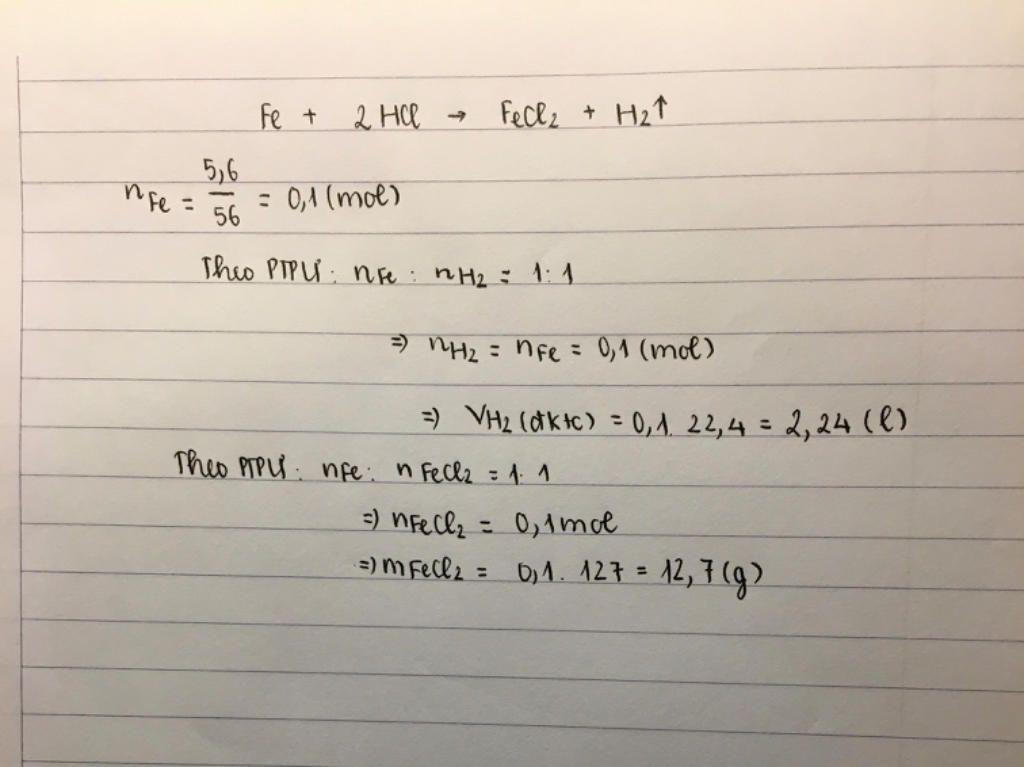 Fe + 2 HCl → FeCl₂ + H₂↑
n Fe = 5,6/56 = 0,1 (mol)
Theo PTPƯ: nFe : nH₂ = 1 : 1
=> nH₂ = nFe = 0,1 (mol)
=> VH₂ (đktc) = 0,1. 22,4 = 2,24 (l)
Theo PTPƯ: nFe: nFeCl₂ = 1. 1
=> nFeCl₂ = 0,1 mol
=> mFeCl₂ = 0,1. 127 = 12,7 (g)